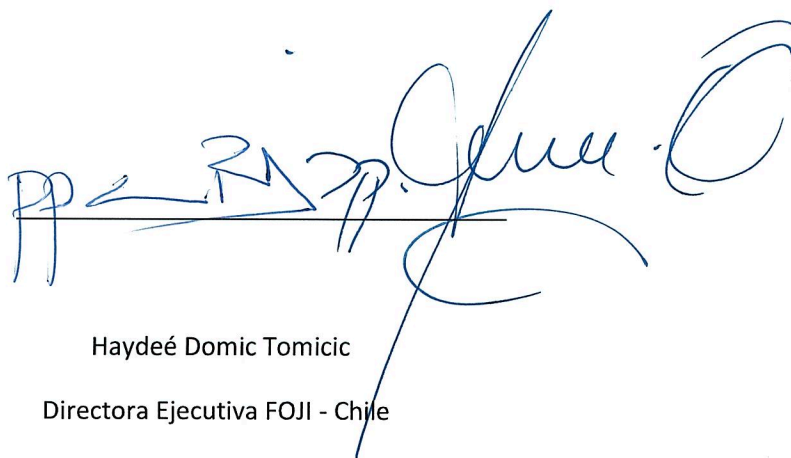 pp pp.
Haydeé Domic Tomicic
Directora Ejecutiva FOJI - Chile